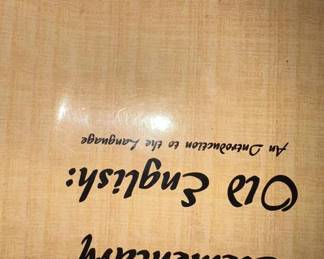 Elementary
Old English:
An Introduction to the Language